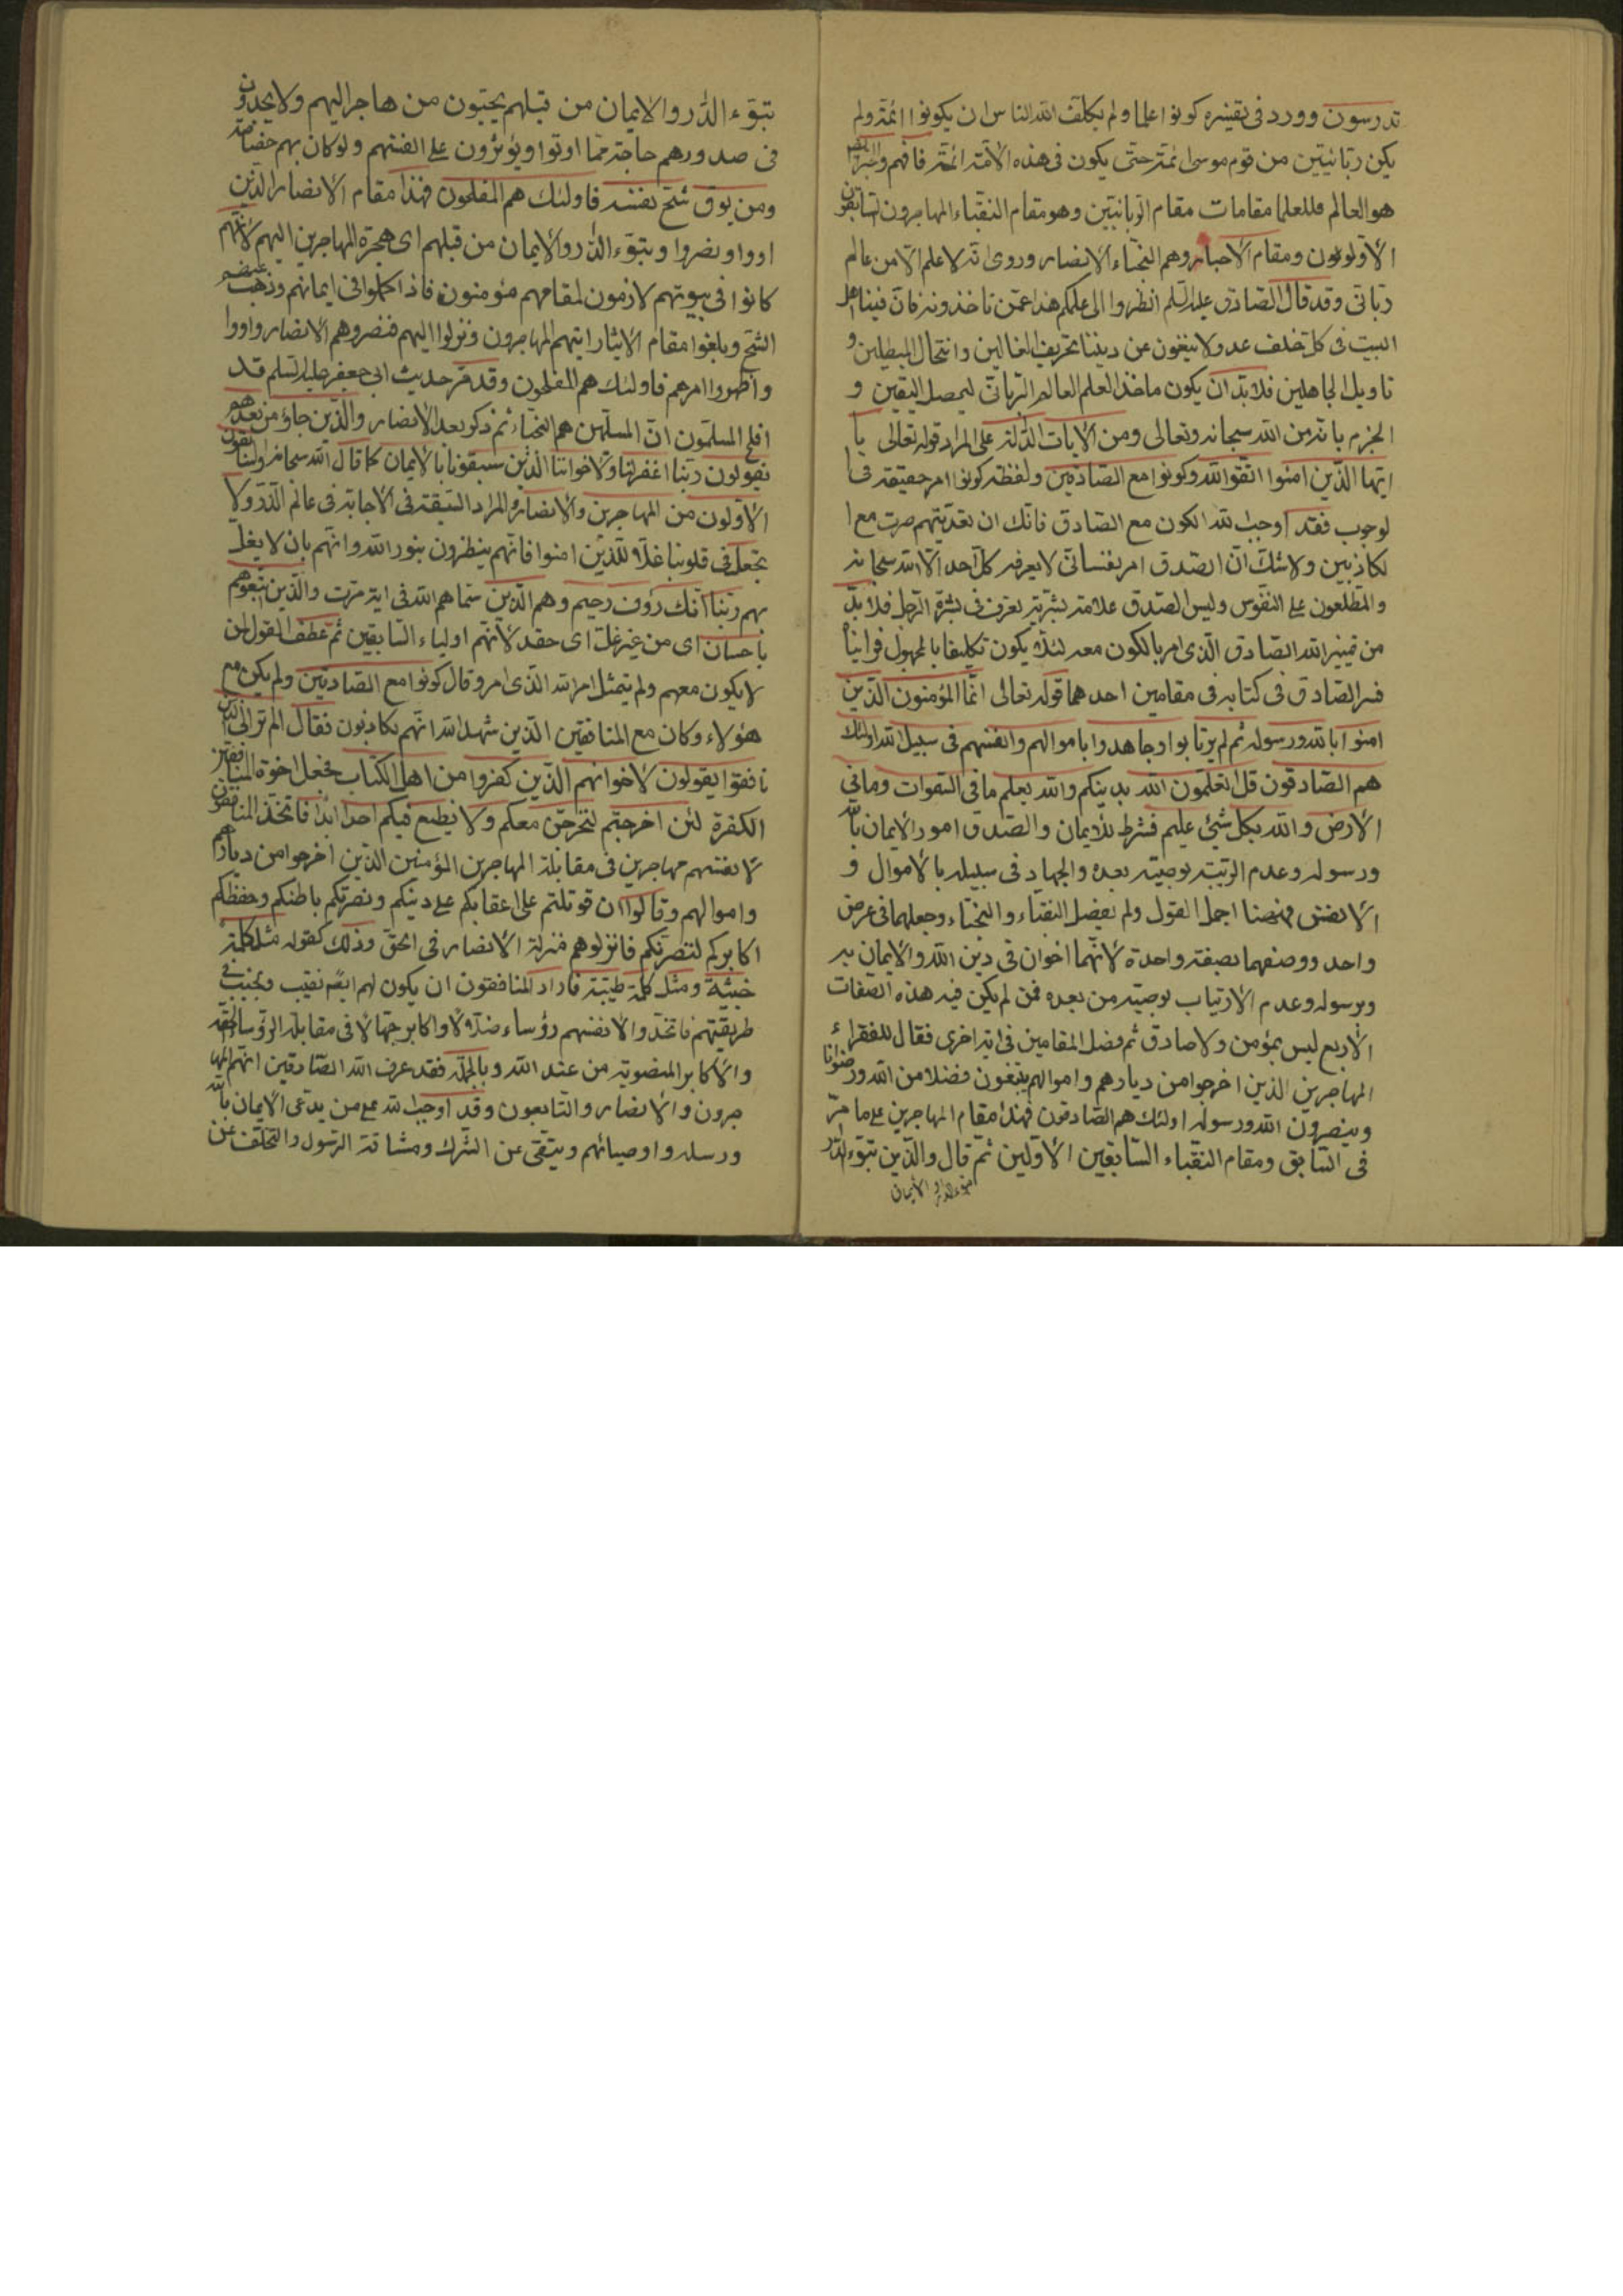 تدرسون وورد في تفسيره كونوا علما ولم يكلف الله الناس ان يكونوا ائمة ولم
يكن ربانيين من قوم موسى ائمة حتى يكون في هذه الامة ائمة فافهم
هو العالم فللعلما مقامات مقام الربانيين وهو مقام النقباء المهاجرون السابقون
الاولون ومقام الاحبار وهم النجباء الانصار وروى انه لا علم الا من عالم
رباني وقد قال الصادق عليه السلم انظروا الى علمكم هذا عمن تاخذونه فان فينا اهل
البيت في كل خلف عدولا ينفون عن ديننا تحريف الغالين وانتحال المبطلين و
تاويل الجاهلين فلابد ان يكون ماخذ العلم العالم الرباني ليحصل اليقين و
الجزم بانه من الله سبحانه وتعالى ومن الايات الدالة على المراد قوله تعالى يا
ايها الذين امنوا اتقوا الله وكونوا مع الصادقين ولفظة كونوا امر حقيقة في ا
لوجوب فقد اوجب الله الكون مع الصادق فانك ان تعديتهم صرت مع ا
لكاذبين ولا شك ان الصدق امر نفساني لا يعرفه كل احد الا الله سبحانه
والمطلعون على النفوس وليس الصدق علامة بشرية تعرف في بشرة الرجل فلابد
من تمييز الله الصادق الذي امر بالكون معه لئلا يكون تكليفا بالمجهول فراينا
فسر الصادق في كتابه في مقامين احدهما قوله تعالى انما المؤمنون الذين
امنوا بالله ورسوله ثم لم يرتابوا وجاهدوا باموالهم وانفسهم في سبيل الله اولئك
هم الصادقون قل اتعلمون الله بدينكم والله يعلم ما في السموات وما في
الارض والله بكل شيء عليم فشرط للايمان والصدق امور الايمان بالله
ورسوله وعدم الريبة بوصيته بعده والجهاد في سبيله بالاموال و
الانفس فهنا اجمل القول ولم يفصل النقباء والنجباء وجعلهما في عرض
واحد ووصفهما بصفة واحدة لانهما اخوان في دين الله والايمان به
وبرسوله وعدم الارتياب بوصيته من بعده فمن لم يكن فيه هذه الصفات
الاربع ليس بمؤمن ولا صادق ثم فصل المقامين في اية اخرى فقال للفقراء
المهاجرين الذين اخرجوا من ديارهم واموالهم يبتغون فضلا من الله ورضوانا
وينصرون الله ورسوله اولئك هم الصادقون فهذا مقام المهاجرين على ما مر
في السابق ومقام النقباء السابقين الاولين ثم قال والذين تبوء الدار
تبوء الدار والايمان
تبوء الدار والايمان من قبلهم يحبون من هاجر اليهم ولا يجدون
في صدورهم حاجة مما اوتوا ويؤثرون على انفسهم ولو كان بهم خصاصة
ومن يوق شح نفسه فاولئك هم المفلحون فهذا مقام الانصار الذين
اووا ونصروا وتبوء الدار والايمان من قبلهم اى هجرة المهاجرين اليهم لانهم
كانوا في بيوتهم لازمون لمقامهم مؤمنون فاذا اكملوا في ايمانهم وذهب عنهم
الشح وبلغوا مقام الايثار ايتهم المهاجرون ونزلوا اليهم فنصروهم الانصار واووا
واظهروا امرهم فاولئك هم المفلحون وقد مر حديث ابي جعفر عليه السلم قد
افلح المسلمون ان المسلمين هم النجباء ثم ذكر بعد الانصار والذين جاؤ من بعدهم
يقولون ربنا اغفر لنا ولاخواننا الذين سبقونا بالايمان كما قال الله سبحانه والسابقون
الاولون من المهاجرين والانصار والمراد السبقة في الاجابة في عالم الذر ولا
تجعل في قلوبنا غلا للذين امنوا فانهم ينظرون بنور الله وانهم بان لا يغل
بهم ربنا انك رؤف رحيم وهم الذين سماهم الله في اية مرت والذين اتبعوهم
باحسان اى من غير غل اى حقد لانهم اولياء السابقين ثم عطف القول لمن
لا يكون معهم ولم يتمثل امر الله الذي امر وقال كونوا مع الصادقين ولم يكن مع
هؤلاء وكان مع المنافقين الذين شهد الله انهم لكاذبون فقال الم تر الى الذين
نافقوا يقولون لاخوانهم الذين كفروا من اهل الكتاب فجعل اخوة المنافقين
الكفرة لئن اخرجتم لنخرجن معكم ولا نطيع فيكم احدا ابدا فاتخذ المنافقون
لانفسهم مهاجرين في مقابلة المهاجرين المؤمنين الذين اخرجوا من ديارهم
واموالهم وقالوا ان قوتلتم على اعقابكم على دينكم ونصرتكم باطنكم وحفظكم
اكابركم لننصرنكم فانزلوهم منزلة الانصار في الحق وذلك كقوله مثل كلمة
خبيثة ومثل كلمة طيبة فاراد المنافقون ان يكون لهم ايضا نقيب ونجيب في
طريقتهم فاتخذوا لانفسهم رؤساء ضلالا واكابر جهالا في مقابلة الرؤساء الحقة
والاكابر المنصوبة من عند الله وبالجملة فقد عرف الله الصادقين انهم المها
جرون والانصار والتابعون وقد اوجب الله على من يدعى الايمان بالله
ورسله واوصيائهم ويتقى عن الشرك ومشاقة الرسول والتخلف عن